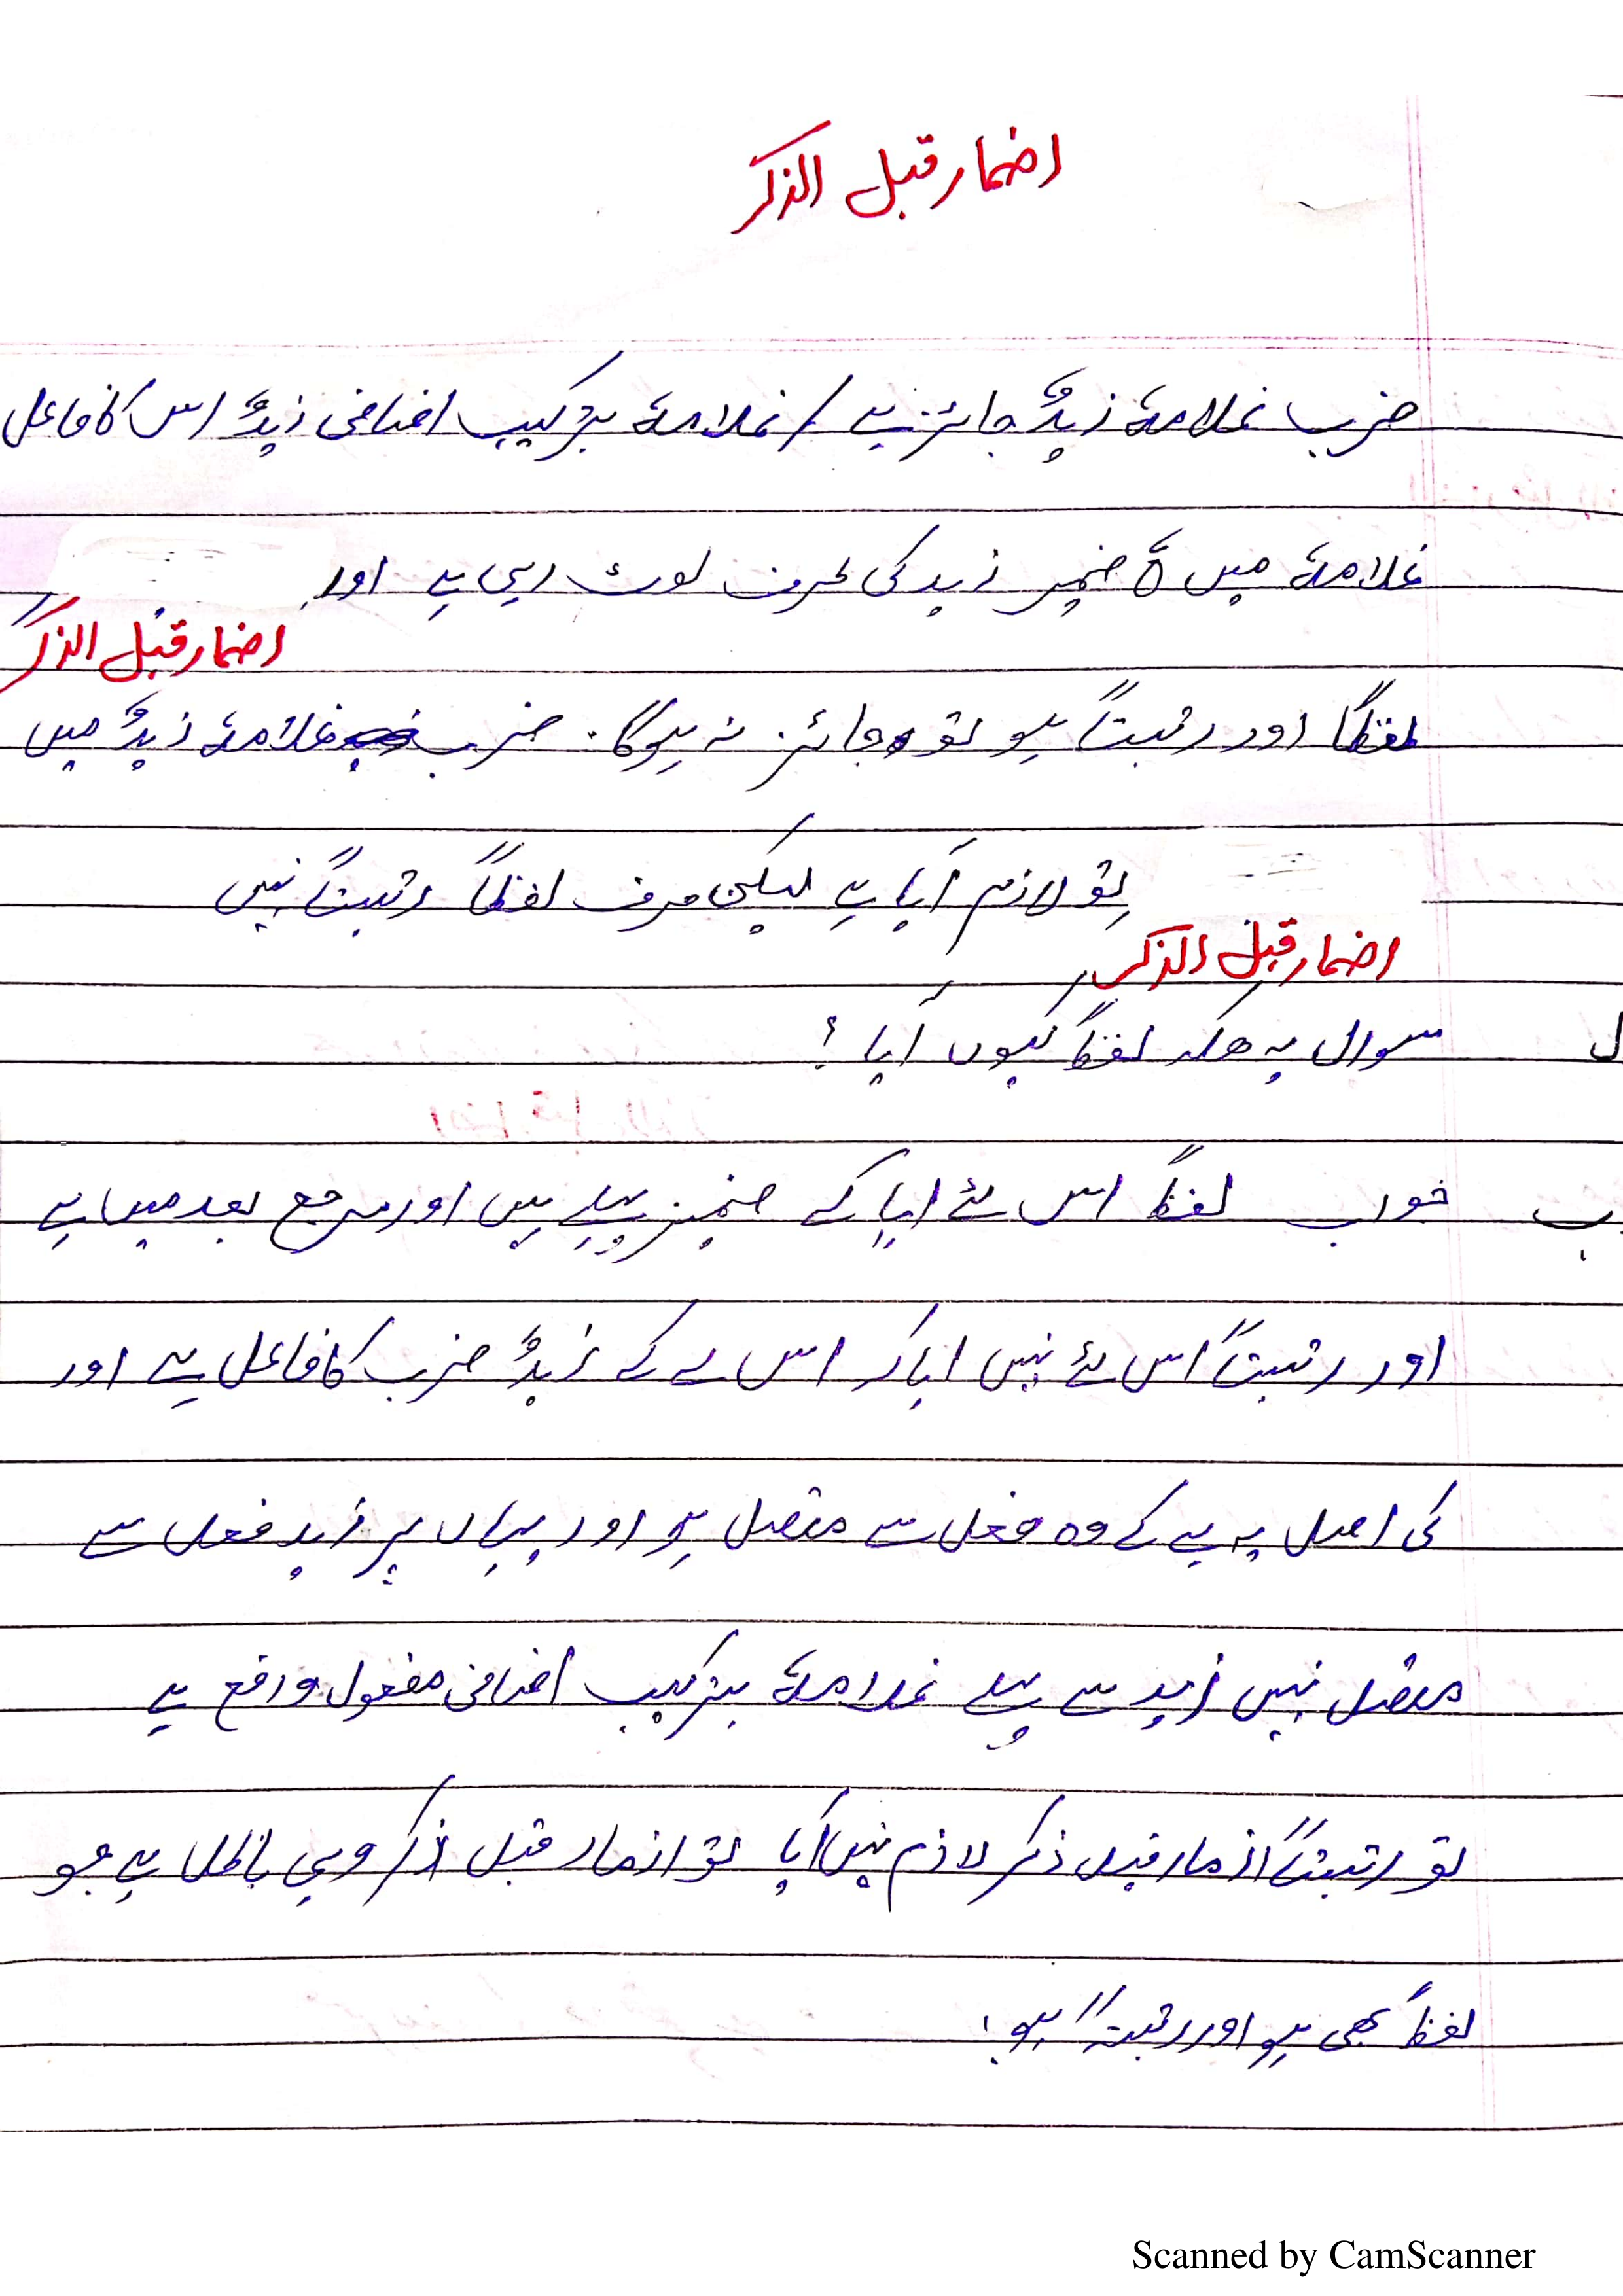 اضمار قبل الذکر
ضرب غلامهٗ زیدٌ جائز ہے / غلامهٗ بترکیب اضافی زیدٌ اس کا فاعل
غلامهٗ میں هٗ ضمیر زید کی طرف لوٹ رہی ہے اور
اضمار قبل الذکر
لفظاً اور رتبتاً ہو تو جائز نہ ہوگا. ضرب غلامهٗ زیدٌ میں
تو لازم آیا ہے لیکن صرف لفظاً رتبتاً نہیں
اضمار قبل الذکر
سوال یہ هیکہ لفظاً کیوں آیا ؟
ل
جواب لفظاً اس لئے ایا کے ضمیر پہلے ہیں اور مرجع بعد میں ہے
ب
اور رتبتاً اس لئے نہیں ایا کہ اس لے کے زیدٌ ضرب کا فاعل ہے اور
کی اصل یہ ہے کے وہ فعل سے متصل ہو اور یہاں پر زید فعل سے
متصل نہیں زید سے پہلے غلامهٗ بترکیب اضافی مفعول واقع ہے
تو رتبتاً ازمار قبل ذکر لازم نہیں آیا تو ازمار قبل ذکر وہی باطل ہے جو
لفظاً بھی ہو اور رتبتاً ہو.
Scanned by CamScanner